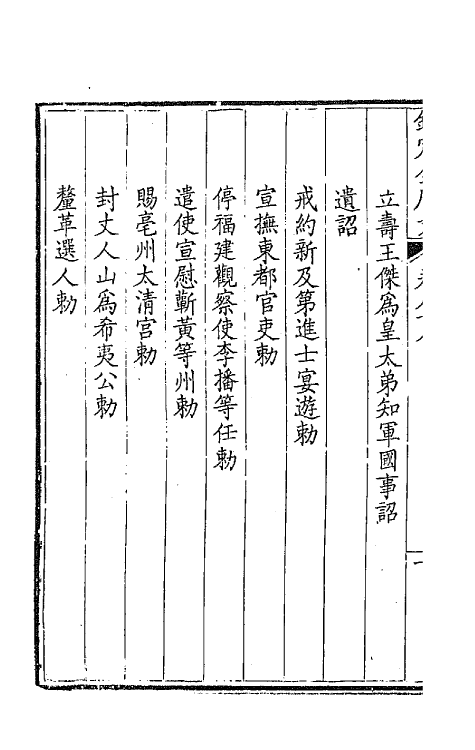 立壽王傑為皇太弟知軍國事詔
遺詔
戒約新及第進士宴遊勅
宣撫東都官吏勅
停福建觀察使李播等任勅
遣使宣慰蘄黃等州勅
賜亳州太清宮勅
封丈人山為希夷公勅
釐革選人勅